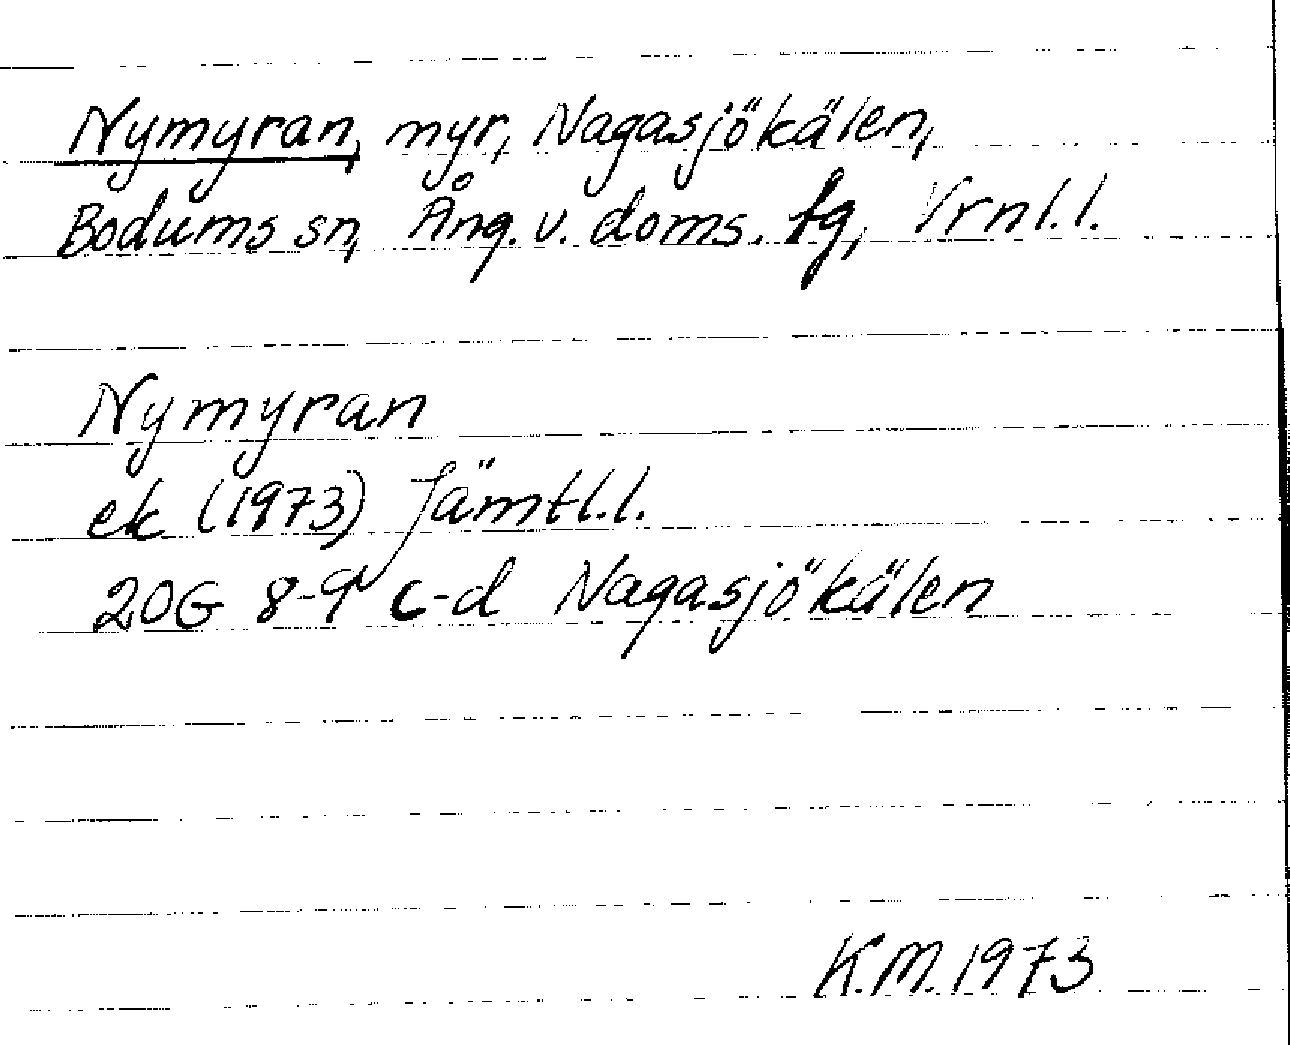 Nymyran, myr, Nagasjökälen,
Bodums sn, Ång. v. doms. fg, Vrnl. l.
Nymyran
ek (1973) Jämtl. l.
20G 8-9 c-d Nagasjökälen
K.M. 1973